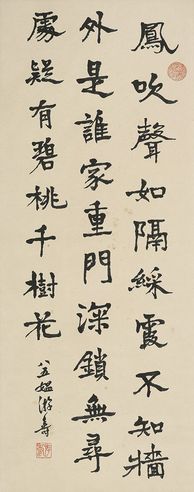 鳳吹聲如隔綵霞不知牆
外是誰家重門深鎖無尋
處疑有碧桃千樹花
八五媪游壽